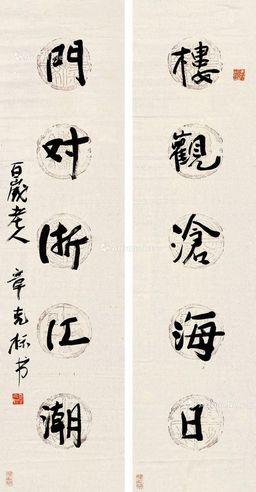 樓觀滄海日
門对浙江潮
百歲老人 章克标书